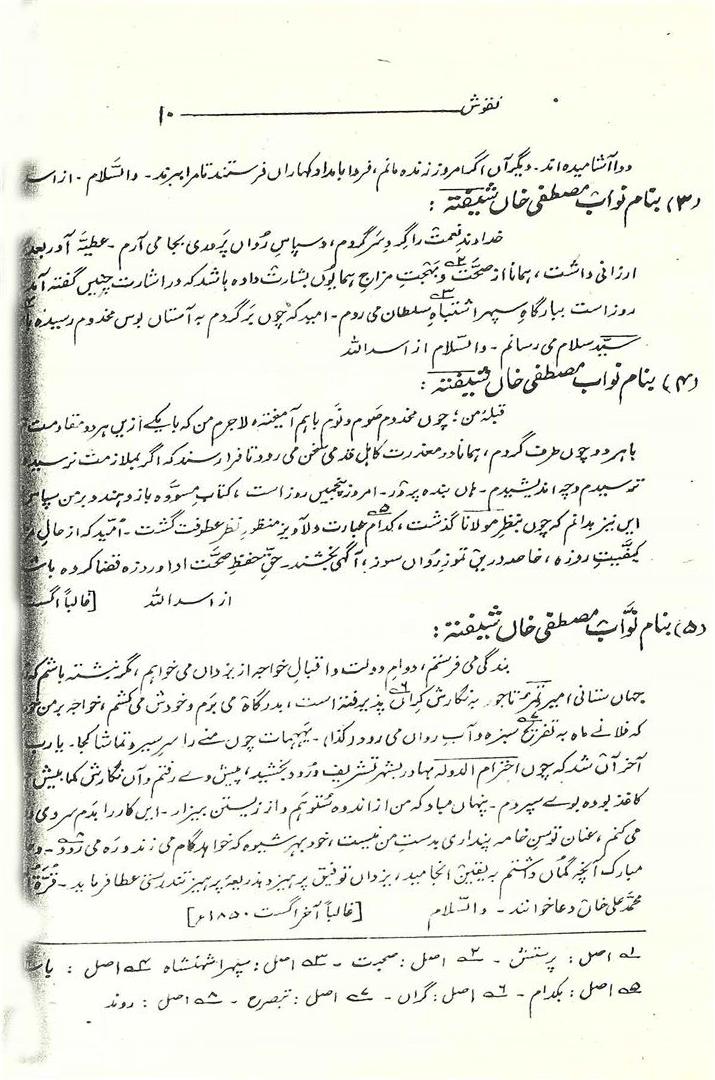 نقوش ــــــــــــــــــــ ۱۰
ودا آشامیده اند۔ دیگر آں اگر امروز زنده مانم، فردا بامداد کہاراں فرستند تا مرا ببرند۔ والسّلام۔ از اسد
(۳) بنام نواب مصطفیٰ خاں شیفتہ :
خداوندِ نعمت را گِردِ سر گردم، و سپاسِ رَواں پَروری بجا می آرم۔ عطیّہ آور بعد
ارزانی داشت، ہمانا از صحّت۲ و بہجتِ مزاجِ ہمایوں بشارت داده باشد کہ در اشارت چنیں گفتہ آمد
روز است ببارگاهِ سپہر اشتباهِ۳ سلطان می روم۔ امید کہ چوں برگردم بہ آستاں بوسِ مخدوم رسیده
سیّد سلام می رسانم۔ والسّلام از اسد اللہ
(۴) بنام نواب مصطفیٰ خاں شیفتہ :
قبلۂ من! چوں مخدوم صَوم و نَوم باہم آمیختہ، لاجرم من کہ با یکے ازیں ہر دو مقاومت
با ہر دو چوں طرف گردم، ہمانا در معذرت کاہل قدمی سخن می رود تا فرا رسند کہ اگر بملازمت نرسیدم
نرسیدم وچہ اندیشیدم۔ ہاں بنده پرور۔ امروز پنجمیں روز است، کتابِ مسوَّده باز دہند و بر من سپاس
ایں نیز بدانم کہ چوں بنظرِ مولانا گذشت، کدام۵ عبارت دلآویز منظورِ نظرِ عطوفت گشت۔ امّید کہ از حالِ
کیفیّتِ روزه، خاصہ دریں تموزِ رَواں سوز، آگہی بخشند۔ حقِّ حفظِ صحّت ادا و روزه قضا کرده باشند
از اسد اللہ [غالباً اگست
(۵) بنام نوَّاب مصطفیٰ خاں شیفتہ :
بندگی می فرستم، دوامِ دولت و اقبالِ خواجہ از یزداں می خواہم، مگر نبشتہ باشم کہ
جہاں ستانی امیر تاجور بہ نگارش کراں۶ پذیرفتہ است، بدرگاه می بَرم و خودش می کشم، خواجہ بر من
کہ فلانے ماه بہ تفریحِ۷ سبزه و آبِ رواں می رود (کذا)۔ ہیہات چوں منے را سرِ سیر و تماشا کجا۔ یارب
آخر آں شد کہ چوں احترام الدولہ بہادر بشہر تشریف وُرود بخشید، پیشِ وے رفتم و آں نگارش کمابیش
کاغذ بوده بوے سپردم۔ پنہاں مباد کہ من از اندوه سُتوہم و از زیستن بیزار۔ ایں کار را بَدم سردی
می کنم، عنانِ توسنِ خامہ پنداری بدستِ من نیست، خود بہر شیوه کہ خواہد گام می زند و ره می رَود۸۔
مبارک آنچہ گماں داشتم بہ یقیں انجامید، یزداں توفیقِ پرہیز و بذریعۂ پرہیز تندرستی عطا فرماید۔ قرّۃ
محمّد علی خاں دعا خوانند۔ والسّلام [غالباً آخر اگست ۱۸۵۰ء]
۱ اصل : پرستش۔ ۲ اصل : صحبت۔ ۳ اصل : سپہر اشہنشاه ۴ اصل :
۵ اصل : بکدام۔ ۶ اصل : گراں۔ ۷ اصل : تبصرح۔ ۸ اصل : روند